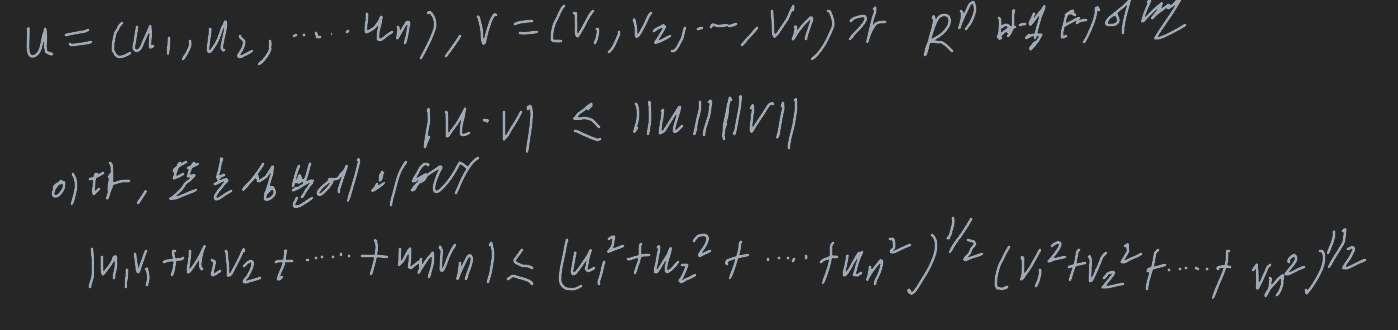 u = (u₁, u₂, ..... uₙ), v = (v₁, v₂, ..., vₙ)가 Rⁿ 벡터이면
|u · v| ≤ ||u|| ||v||
이다, 또는 성분에 의하여
|u₁v₁ + u₂v₂ + ...... + uₙvₙ| ≤ (u₁² + u₂² + ..... + uₙ²)^1/2 (v₁² + v₂² + ..... + vₙ²)^1/2